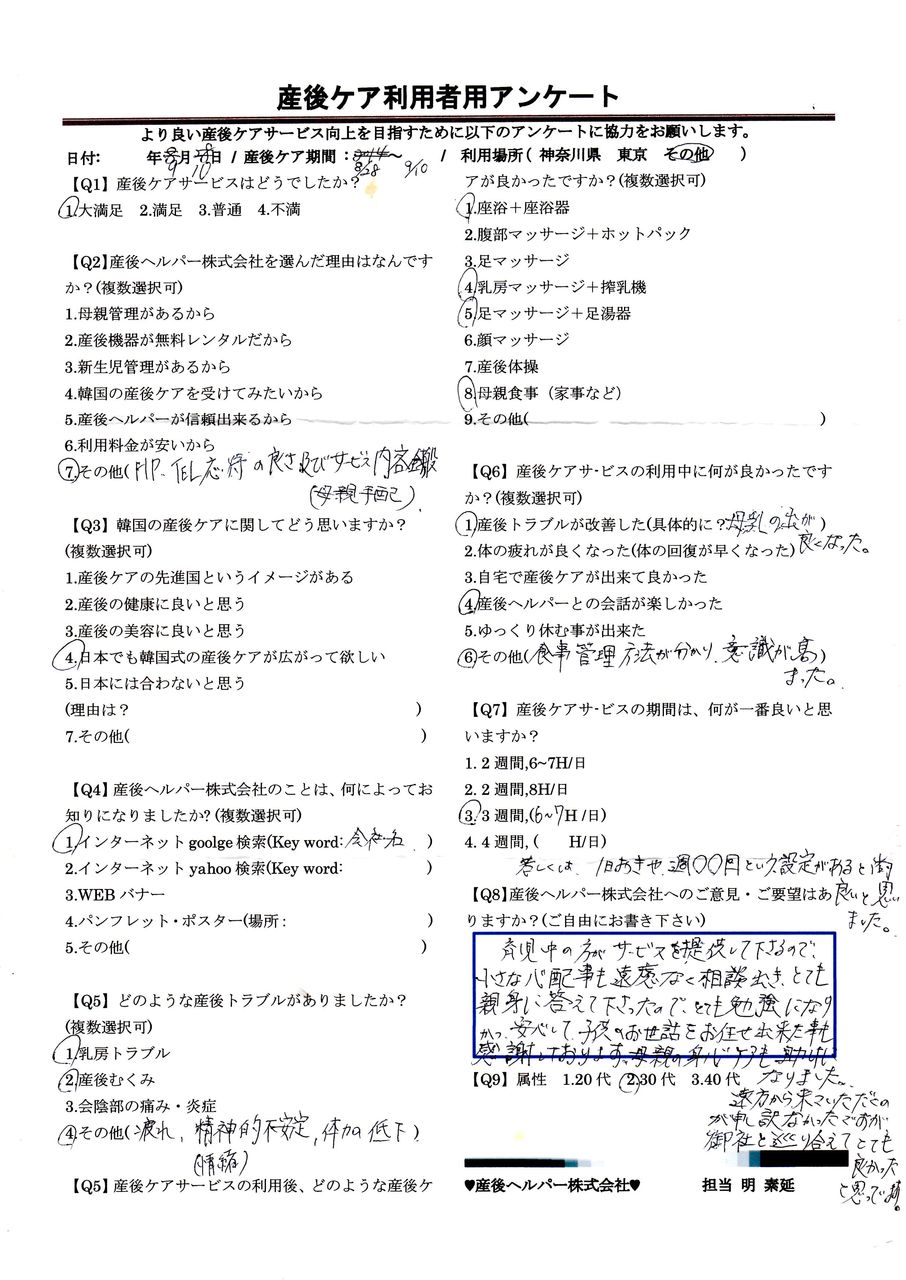 産後ケア利用者用アンケート
より良い産後ケアサービス向上を目指すために以下のアンケートに協力をお願いします。
日付: 年 9月 10日 / 産後ケア期間: 8/28 9/10 / 利用場所( 神奈川県 東京 その他 )
【Q1】産後ケアサービスはどうでしたか?
1.大満足 2.満足 3.普通 4.不満
【Q2】産後ヘルパー株式会社を選んだ理由はなんです
か?(複数選択可)
1.母親管理があるから
2.産後機器が無料レンタルだから
3.新生児管理があるから
4.韓国の産後ケアを受けてみたいから
5.産後ヘルパーが信頼出来るから
6.利用料金が安いから
7.その他( HP、TEL応対の良さ及びサービス内容全般
【Q3】韓国の産後ケアに関してどう思いますか?
(複数選択可)
1.産後ケアの先進国というイメージがある
2.産後の健康に良いと思う
3.産後の美容に良いと思う
4.日本でも韓国式の産後ケアが広がって欲しい
5.日本には合わないと思う
(理由は? )
7.その他( )
【Q4】産後ヘルパー株式会社のことは、何によってお
知りになりましたか?(複数選択可)
1.インターネット goolge 検索(Key word: 会社名 )
2.インターネット yahoo 検索(Key word: )
3.WEB バナー
4.パンフレット・ポスター(場所: )
5.その他( )
【Q5】どのような産後トラブルがありましたか?
(複数選択可)
1.乳房トラブル
2.産後むくみ
3.会陰部の痛み・炎症
4.その他( 疲れ、精神的不安定、体力の低下 )
【Q5】産後ケアサービスの利用後、どのような産後ケ
アが良かったですか?(複数選択可)
1.座浴+座浴器
2.腹部マッサージ+ホットパック
3.足マッサージ
4.乳房マッサージ+搾乳機
5.足マッサージ+足湯器
6.顔マッサージ
7.産後体操
8.母親食事(家事など)
9.その他( )
【Q6】産後ケアサービスの利用中に何が良かったです
か?(複数選択可)
1.産後トラブルが改善した(具体的に?母乳の出が )
良くなった。
2.体の疲れが良くなった(体の回復が早くなった)
3.自宅で産後ケアが出来て良かった
4.産後ヘルパーとの会話が楽しかった
5.ゆっくり休む事が出来た
6.その他( 食事管理方法が分かり、意識が高 )
まった。
【Q7】産後ケアサービスの期間は、何が一番良いと思
いますか?
1. 2 週間,6~7H/日
2. 2 週間,8H/日
3. 3 週間,(6~7H /日)
4. 4 週間, ( H/日)
若しくは、1日おきや、週〇〇回という設定があると尚
良いと思い
ました。
【Q8】産後ヘルパー株式会社へのご意見・ご要望はあ
りますか?(ご自由にお書き下さい)
育児中の方がサービスを提供して下さるので、
小さな心配事も遠慮なく相談出き、とても
親身に答えて下さったので、とても勉強になり
かつ、安心して、子供のお世話をお任せ出来た事も
感謝しております。母親の身心ケアも助けに
なりました。
【Q9】属性 1.20 代 2.30 代 3.40 代
遠方から来ていただくの
が申し訳なかったですが
御社と巡り合えてとても
良かった
と思ってます。
♥産後ヘルパー株式会社♥ 担当 明 素延